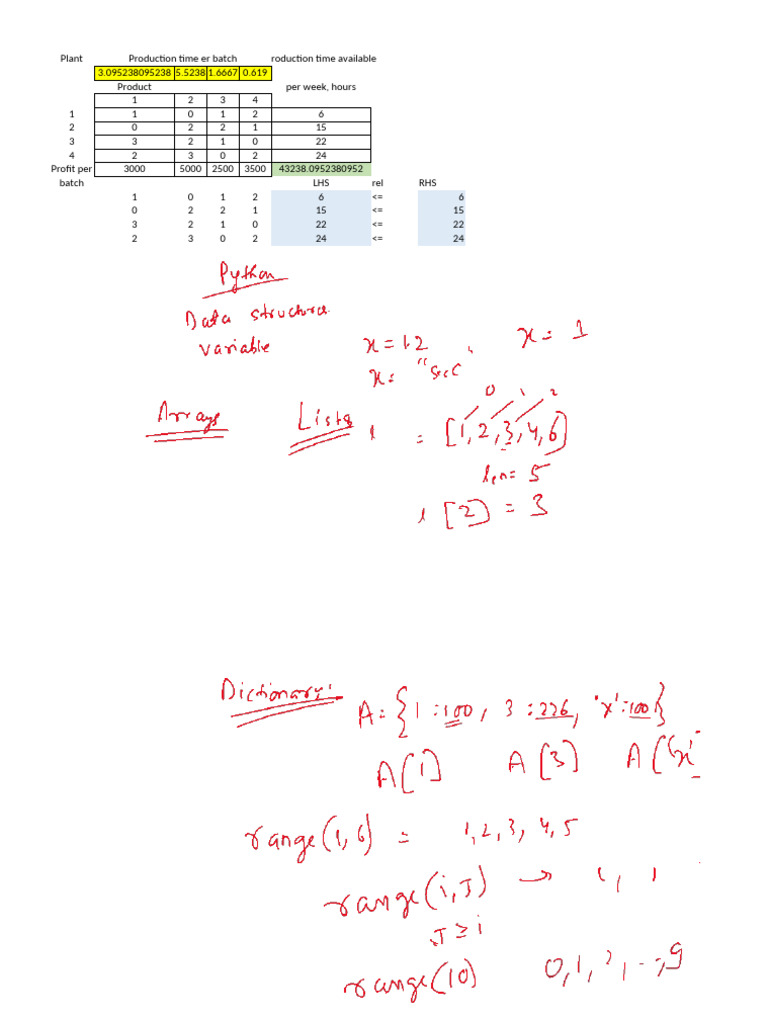 Plant Production time er batch roduction time available
3.095238095238 5.5238 1.6667 0.619
Product per week, hours
1 2 3 4
1 1 0 1 2 6
2 0 2 2 1 15
3 3 2 1 0 22
4 2 3 0 2 24
Profit per 3000 5000 2500 3500 43238.0952380952
batch LHS rel RHS
1 0 1 2 6 <= 6
0 2 2 1 15 <= 15
3 2 1 0 22 <= 22
2 3 0 2 24 <= 24
Python
Data structure
variable x = 1.2 x = 1
x =
0 1 2
Arrays Lists l = [1, 2, 3, 4, 6]
len = 5
l [2] = 3
Dictionary: A = {1 : 100, 3 : 226, 'x' : 100}
A[1] A[3] A['x'
range(1, 6) = 1, 2, 3, 4, 5
range(i, J) →
J ≥ i
range(10) 0, 1, 2, - -, 9